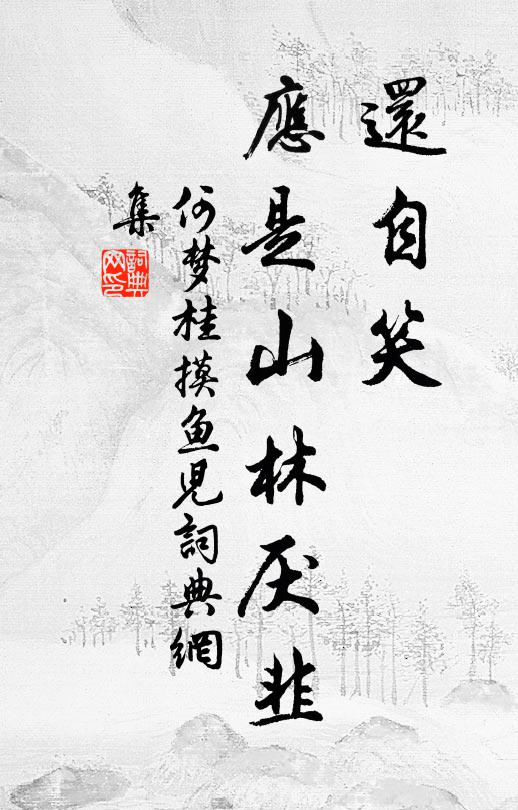 還自笑
應是山林厌韭
何梦桂摸鱼児詞典網
集
詞典
网印